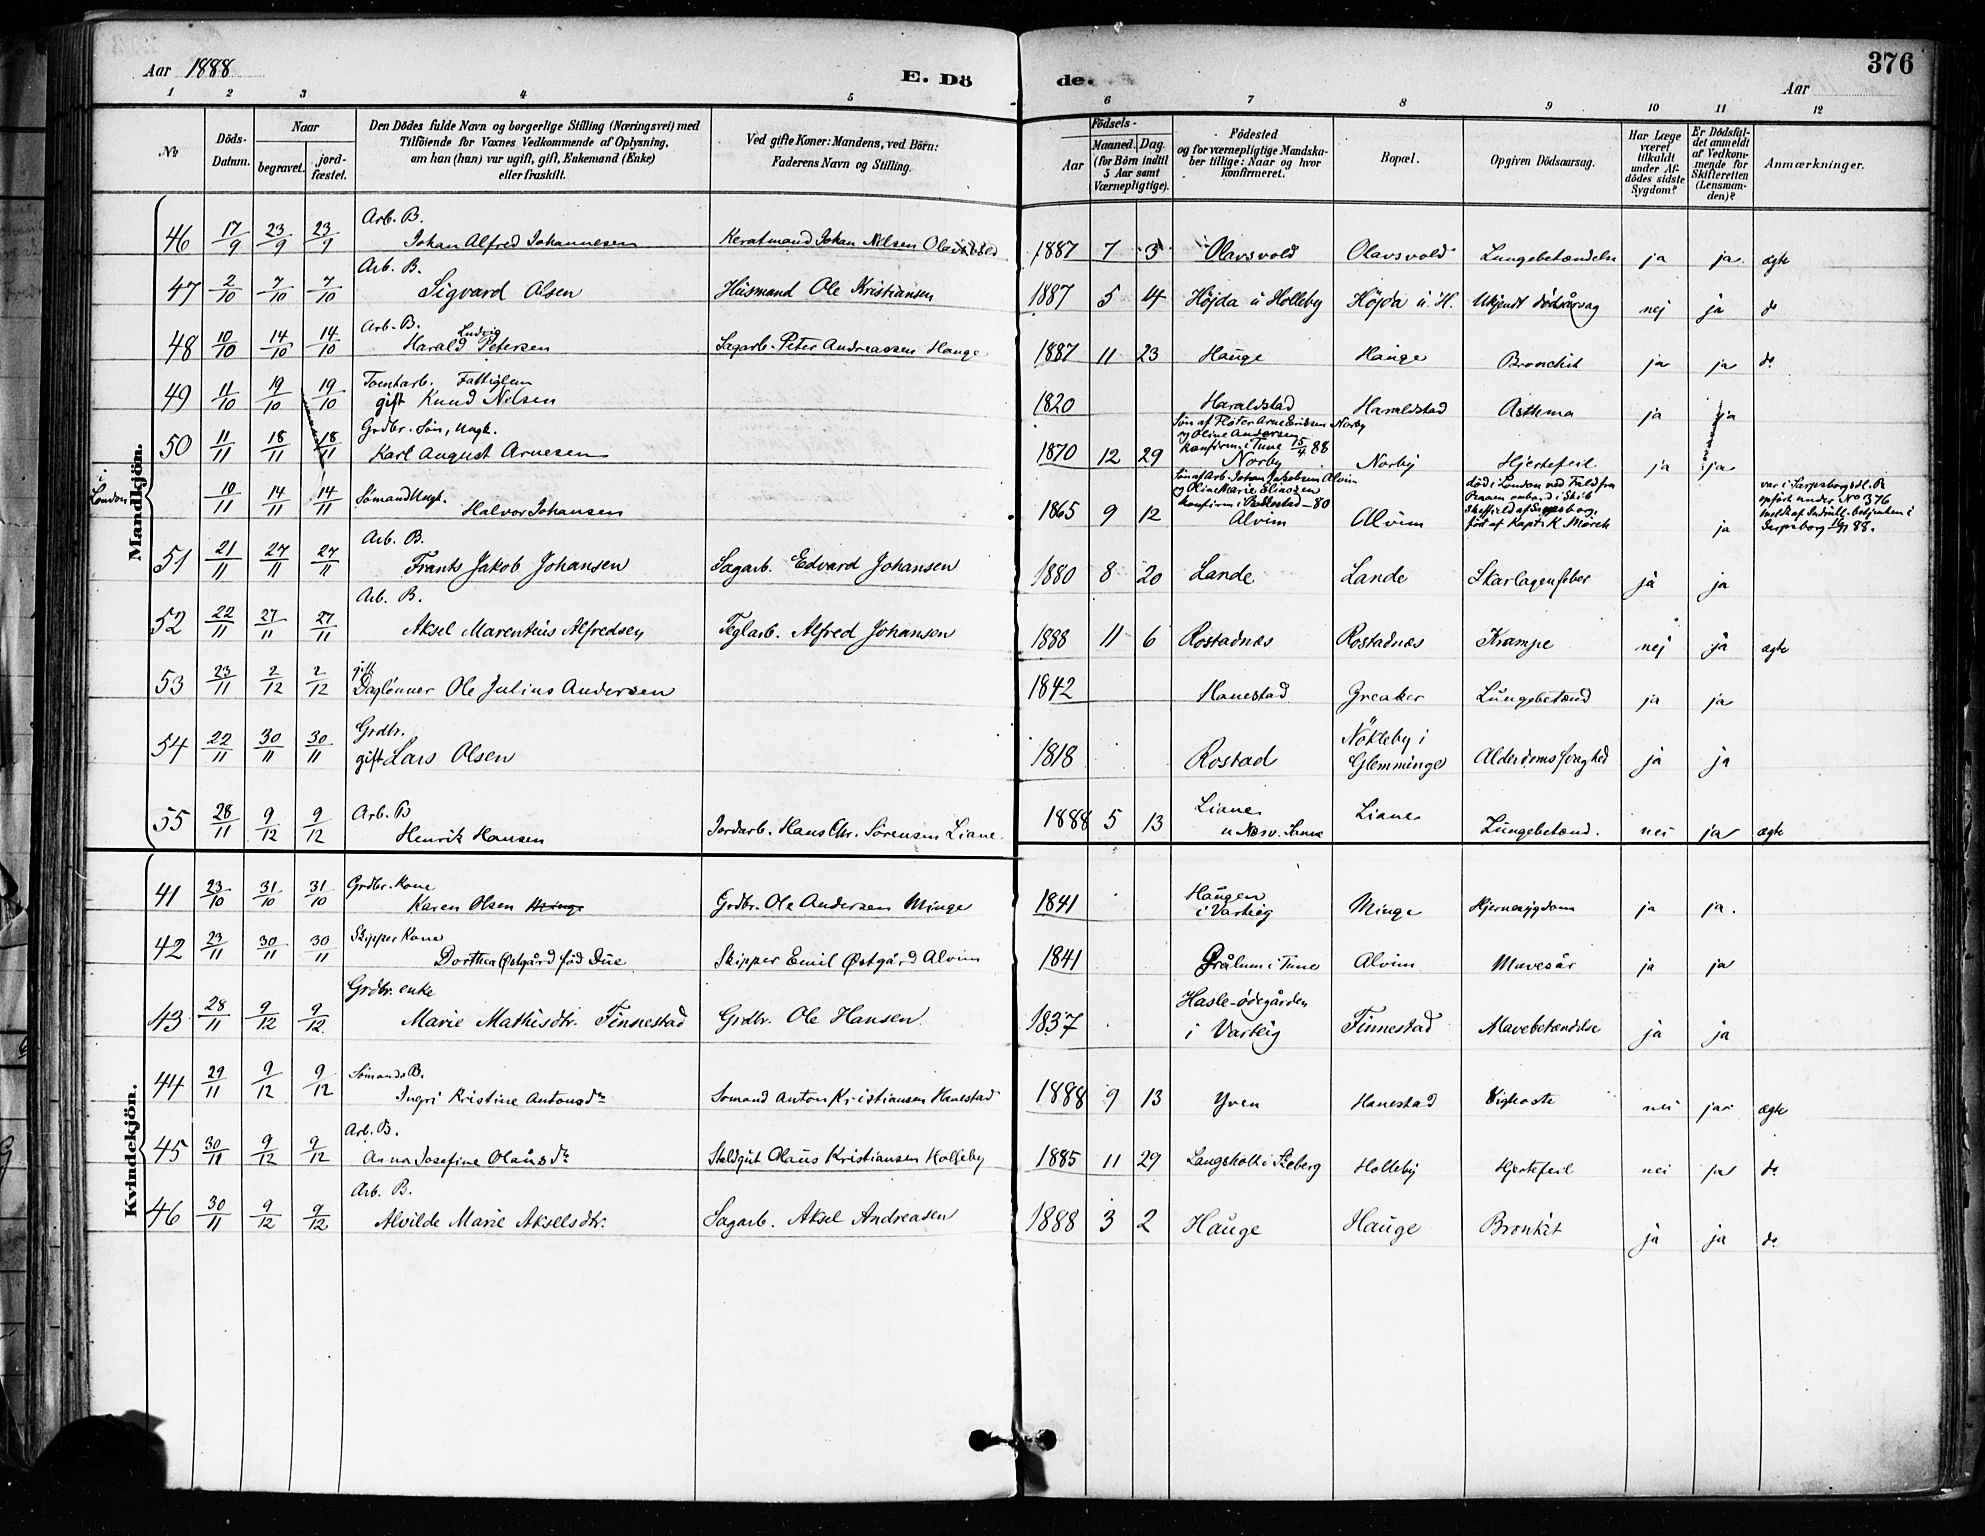 Aar 1888
E. Dö
de.
376
Aar
1 2 3 4 5 6 7 8 9 10 11 12
No
Döds-Datum.
Naar
begravet.
jord-fæstet.
Den Dödes fulde Navn og borgerlige Stilling (Næringsvei) med
Tilföiende for Voxnes Vedkommende af Oplysning,
om han (hun) var ugift, gift, Enkemand (Enke)
eller fraskilt.
Ved gifte Koner: Mandens, ved Börn:
Faderens Navn og Stilling.
Födsels-
Aar
Maaned. Dag.
(for Börn indtil
5 Aar samt
Værnepligtige).
Födested
og for værnepligtige Mandska-
ber tillige: Naar og hvor
konfirmeret.
Bopæl.
Opgiven Dödsaarsag.
Har Læge
været
tilkaldt
under Af-
dödes sidste
Sygdom?
Er Dödsfal-
det anmeldt
af Vedkom-
mende for
Skifteretten
(Lensman-
den)?
Anmærkninger.
Mandkjön.
Arb. B.
46 17/9 23/9 23/9 Johan Alfred Johannesen Johan Nilsen 1887 7 5 Olavsvold Olavsvold Lungebetændelse ja ja ægte
Arb. B.
47 2/10 7/10 7/10 Sigvard Olsen Husmand Ole Kristiansen 1887 5 4 Höjda u Holleby Höjda u. H. Ukjendt dødsårsag nej ja do
Arb. B.
48 10/10 14/10 14/10 Harald Ludvig Petersen Sagarb. Peter Andreassen Hauge 1887 11 23 Hauge Hauge Bronchit ja ja do
Tomtarb. Fattiglem
49 11/10 19/10 19/10 gift Knud Nilsen 1820 Haraldstad Haraldstad Asthma ja ja
Grdbr. Søn, Ungk.
50 11/11 18/11 18/11 Karl August Arnesen 1870 12 29 Søn af Fløter Arne Eriksen Norby
og Oline Andersen
konfirm. i Tune 15/4 88
Norby Norby Hjertefeil ja ja
i London
10/11 14/11 14/11 Sømand Ungk.
Halvor Johansen 1865 9 12 Søn af Arb. Johan Jakobsen Alvim
og Oline Marie Eliassen
konfirm. i 80
Alvim Alvim død i London ved Fald fra
ombord i Skib
Sheffield af Sarpsborg,
ført af Kapt. K. Mørck ja var i Sarpsborgs
opført under No 376
i
Sarpsborg 88.
Arb. B.
51 21/11 27/11 27/11 Frants Jakob Johansen Sagarb. Edvard Johansen 1880 8 20 Lande Lande Skarlagensfeber ja ja
Arb. B.
52 22/11 27/11 27/11 Aksel Marentius Alfredsen Teglarb. Alfred Johansen 1888 11 6 Rostadnæs Rostadnæs Krampe nej ja ægte
gift
53 23/11 2/12 2/12 Daglønner Ole Julius Andersen 1842 Hanestad Greaker Lungebetænd ja ja
Grdbr.
54 22/11 30/11 30/11 gift Lars Olsen 1818 Rostad Nökleby i
Glemminge Alderdomssvaghed ja ja
Arb. B
55 28/11 9/12 9/12 Henrik Hansen Jordarb. Hans Chr. Sörensen Liane 1888 5 13 Liane
u Liane Lungebetænd. nei ja ægte
Kvindekjön.
Grdbr. Kone
41 23/10 31/10 31/10 Karen Olsen Minge Grdbr. Ole Andersen Minge 1841 Haugen
i Varteig Minge Hjernesygdom ja ja.
Skipper Kone
42 23/11 30/11 30/11 Dorthea Østgård fød Due Skipper Emil Østgård Alvim 1841 Grålum i Tune Alvim Mavesår ja ja
Grdbr. enke
43 28/11 9/12 9/12 Marie Mathisdtr. Finnestad Grdbr. Ole Hansen 1837 Hasle-ødegården
i Varteig Finnestad Mavebetændelse ja ja
Sømands B.
44 29/11 9/12 9/12 Ingri Kristine Antonsdtr Sømand Anton Kristiansen Hanestad 1888 9 13 Yven Hanestad Kighoste nei ja ægte
Arb. B.
45 30/11 9/12 9/12 Anna Josefine Olausdtr Staldgut Olaus Kristiansen Holleby 1885 11 29 Langsholt i Skeberg Holleby Hjertefeil nei ja do
Arb. B.
46 30/11 9/12 9/12 Alvilde Marie Akselsdtr. Sagarb. Aksel Andreasen 1888 3 2 Hauge Hauge Bronkit ja ja do